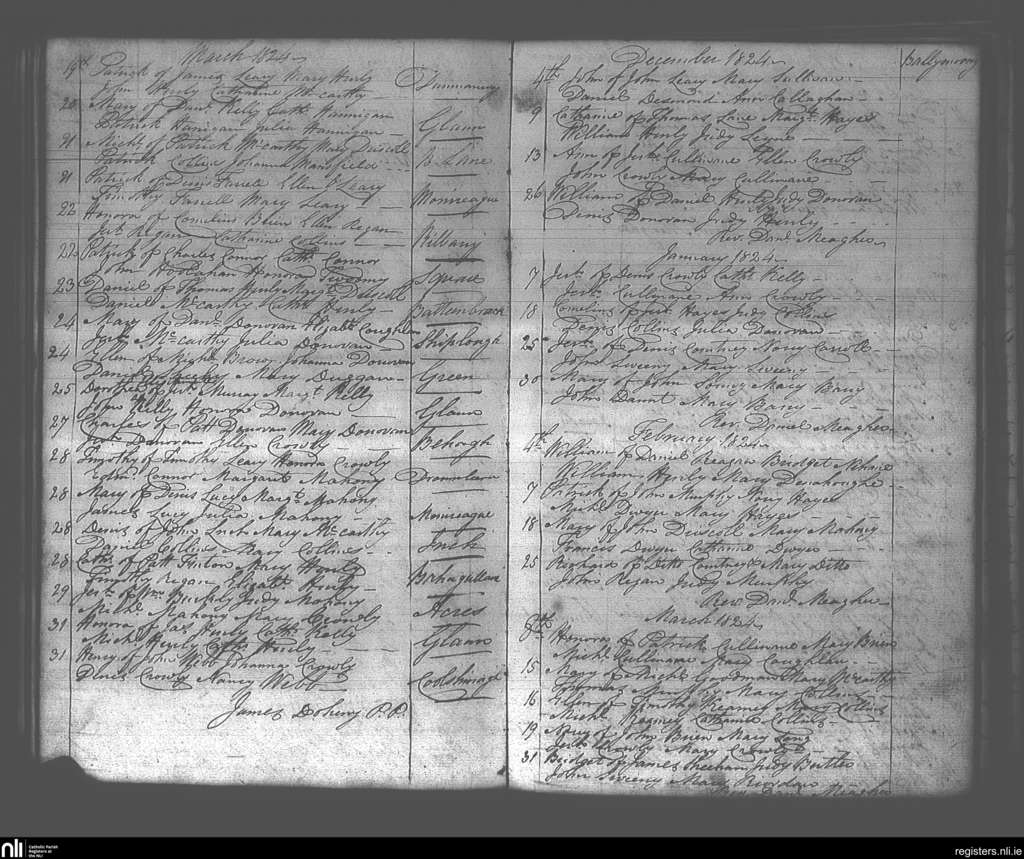 March 1824
19th Patrick of James Leary Mary Hurly
John Hurly Catharine McCarthy Drummoney
20 Mary of Danl Kelly Cath Hannigan
Patrick Hanigan Julia Hannigan Glaun
21 Michl of Patrick McCarthy Mary Driscoll
Patrick Collins Johanna Mansfield
21 Patrick of Denis Farrell Ellen O'Leary
Timothy Farrell Mary Leary Monireague
22 Honora of Cornelius Brien Ellen Regan
Jer Regan Catharine Collins Kilbarry
22 Patrick of Charles Connor Cath Connor
John Honora Square
23 Daniel of Thomas Hurly Margt Driscoll
Daniel McCarthy Cath Hurly
24 Mary of Danl Donovan Elizath Coughlan
Jer McCarthy Julia Donovan Shiplough
24 Ellen of Michl Brown Johanna Donovan
Daniel Mary Duggan Green
25 of Jer Murray Margt Kelly
John Kelly Honora Donovan Glaun
27 Charles of Patt Donovan Mary Donovan
Donovan Ellen Crowly Behough
28 Timothy of Timothy Leary Honora Crowly
Connor Margaret Mahony
28 Mary of Denis Lucy Margt Mahony
James Lucy Julia Mahony Monireague
28 Denis of John Mary McCarthy
Daniel Collins Mary Collins
28 Cath of Patt Mary Hurly
Timothy Regan Elizath Hurly
29 Jer of Wm Buckly Judy Mahony
Michl Mahony Mary Acres
31 Honora of Jas Hurly Cath Kelly
Michl Hurly Cath Hurly Glaun
31 Henry of John Webb Johanna Crowly
Denis Crowly Nancy Webb
James Doheny P.P.
December 1824 Ballymoney
4th John of John Leary Mary Sullivan
Daniel Desmond Ann Callaghan
9 Catharine of Thomas Lane Margt Hayes
William Hurly Judy
13 Ann of Jer Cullinane Ellen Crowly
John Crowly Mary Cullinane
26 William of Daniel Hurly Judy Donovan
Denis Donovan Judy Hurly
Revd Danl Meagher
January 1824
7 Jer of Denis Crowly Cath Kelly
Jer Cullinane Ann Crowly
18 Cornelius of Jer Hayes Judy Collins
Denis Collins Julia Donovan
25 Jer of Denis Courtney Nancy Carroll
John Sweeny Mary Sweeny
30 Mary of John Mary Barry
John Mary Barry
Rev. Daniel Meagher
February 1824
4th William of Daniel Reagan Bridget
William Hurly Mary Donahoughe
7 Patrick of John Murphy Mary Hayes
Michl Dwyer Mary Hayes
18 Mary of John Driscoll Mary Mahony
Francis Dwyer Catharine Dwyer
25 Richard of Ditto Courtney Mary Ditto
John Regan Judy
Revd Danl Meagher
March 1824
8th Honora of Patrick Cullinane Mary Brien
Michl Cullinane Mary Coughlan
15 Mary of Michl Goodman Mary McCarthy
Murphy Mary Collins
16 Ellen of Timothy Regan Mary Collins
Michl Catharine Collins
19 Nancy of John Brien Mary Long
Jer Crowly Mary Crowly
31 Bridget of James Sheehan Judy Buttler
John Sweeny Mary Riordan
Rev Danl Meagher
nli
Catholic Parish
Registers at
the NLI
registers.nli.ie